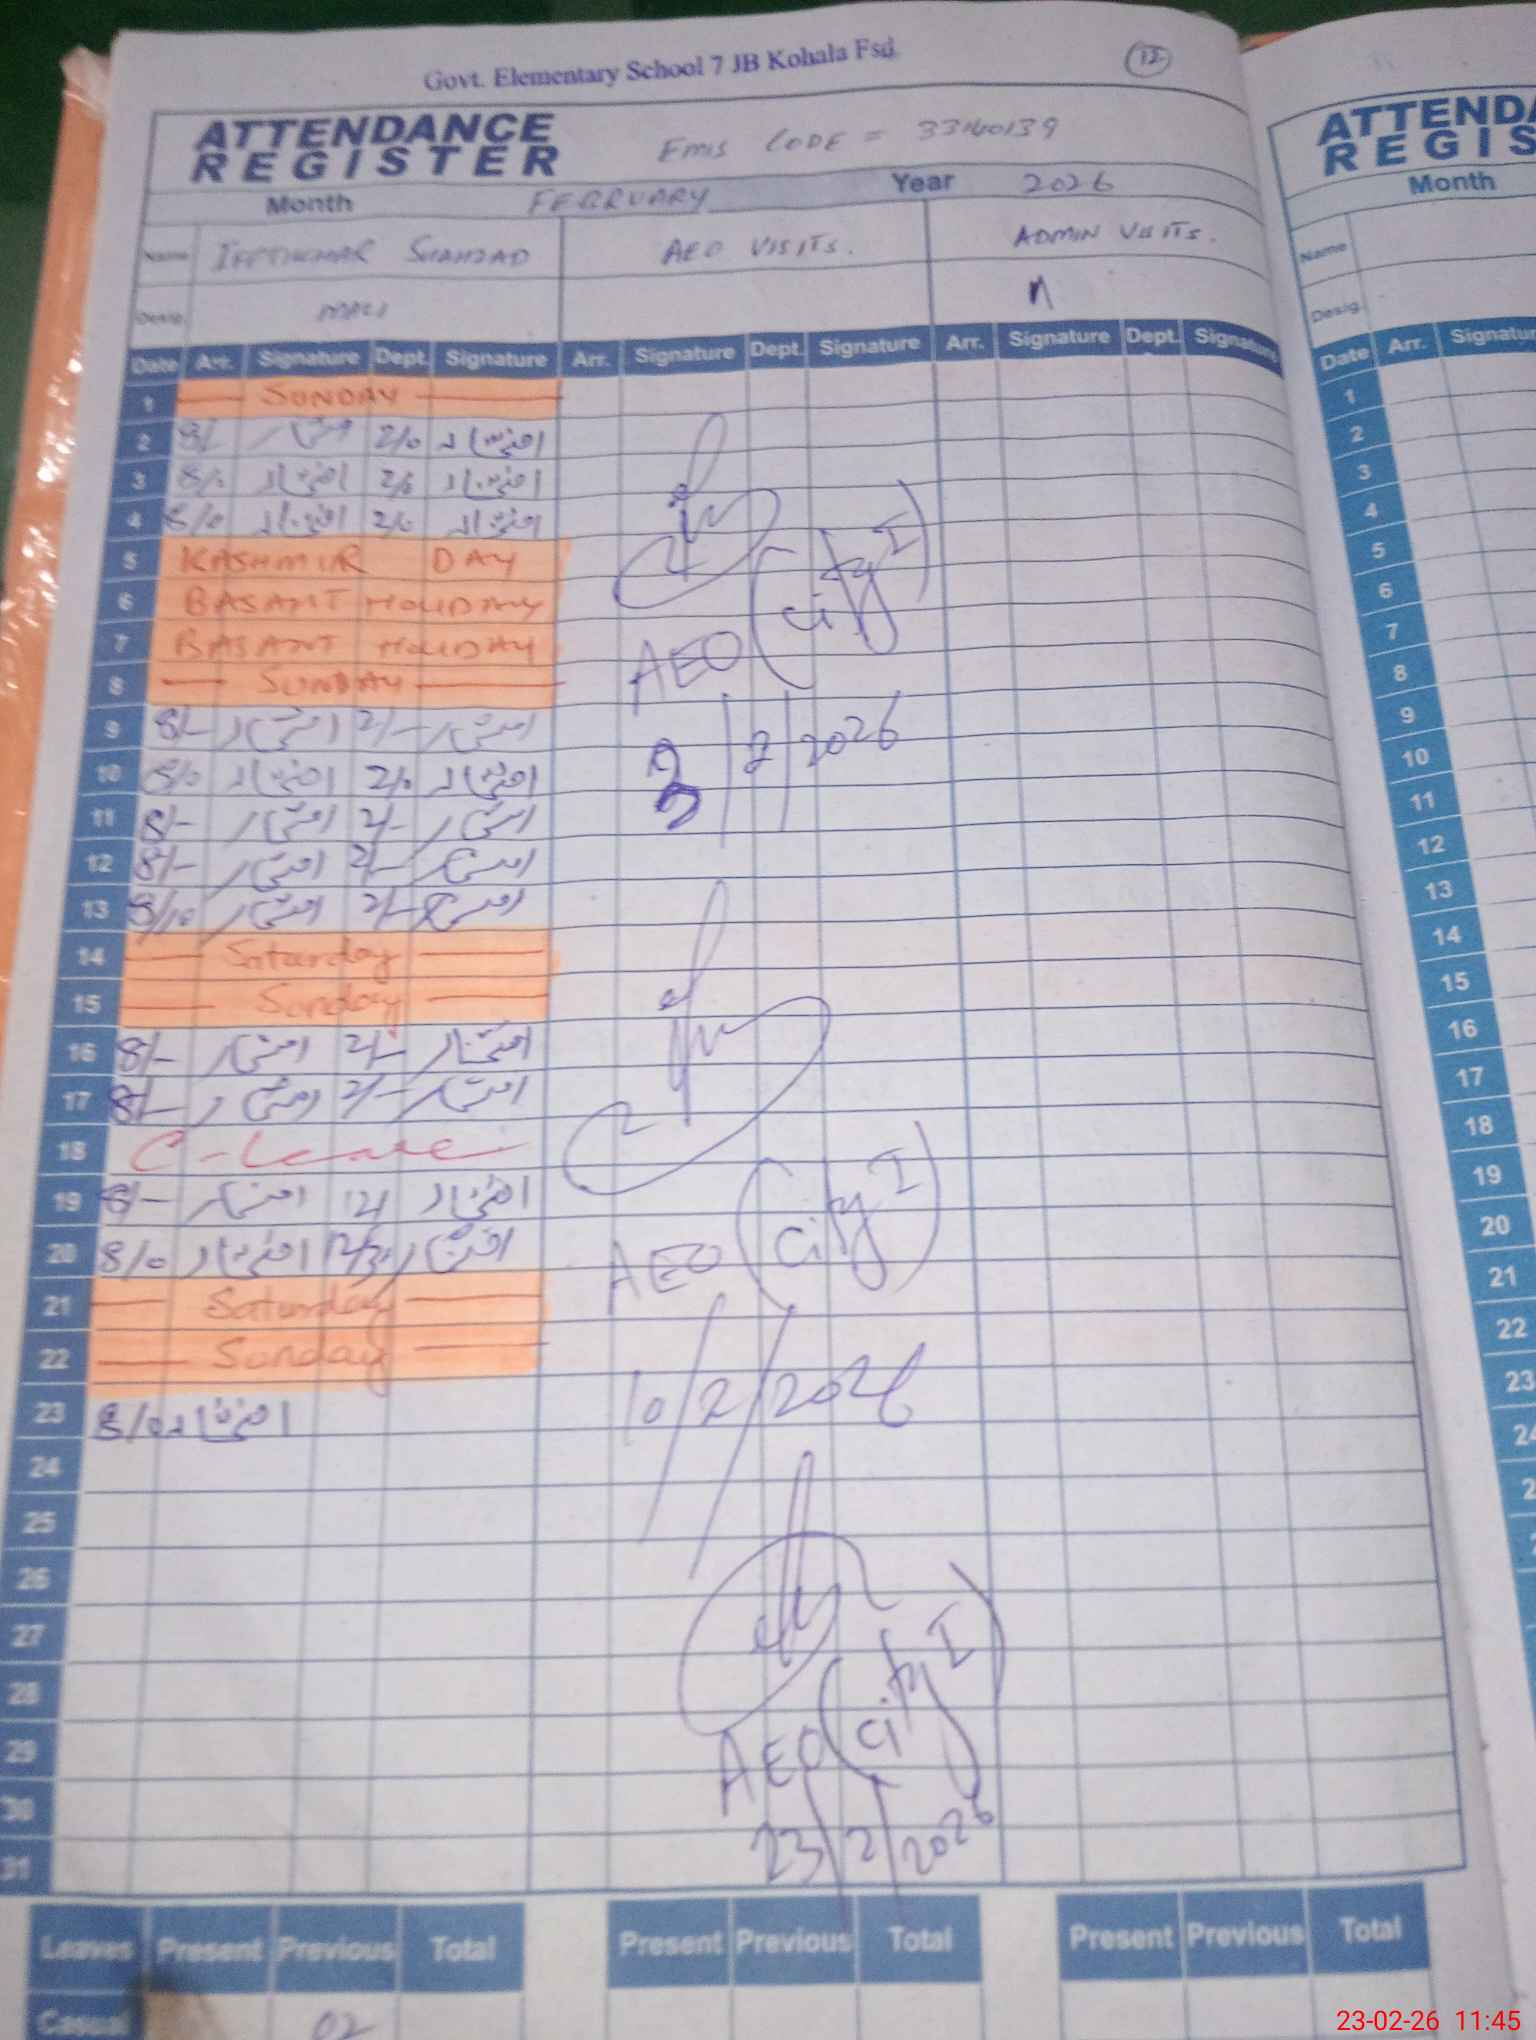 Govt. Elementary School 7 JB Kohala Fsd.
12
ATTENDANCE REGISTER
EMIS CODE = 33140139
Month FEBRUARY Year 2026
Name IFFTIKHAR SHAHZAD AEO VISITS. ADMIN VISITS.
Desig. MALI
Date Arr. Signature Dept. Signature Arr. Signature Dept. Signature Arr. Signature Dept. Signature
1 SUNDAY
2 8/- 2/0 افتخار
3 8/0 افتخار 2/0 افتخار
4 8/0 افتخار 2/0 افتخار
5 KASHMIR DAY
6 BASANT HOLIDAY
7 BASANT HOLIDAY
8 SUNDAY
AEO (City I)
3/2/2026
9 8/- افتخار 2/- افتخار
10 8/0 افتخار 2/0 افتخار
11 8/- افتخار 2/- افتخار
12 8/- افتخار 2/- افتخار
13 8/10 افتخار 2/- افتخار
14 Saturday
15 Sunday
16 8/- افتخار 2/- افتخار
17 8/- افتخار 2/- افتخار
18 C-Leave
19 8/- افتخار 12/ افتخار
20 8/0 افتخار 12/30 افتخار
AEO (City I)
10/2/2026
21 Saturday
22 Sunday
23 8/0 افتخار
24
25
26
27
28
29
30
31
AEO (City I)
23/2/2026
Leaves Present Previous Total Present Previous Total Present Previous Total
Casual 02
ATTENDA
REGIS
Month
Name
Desig.
Date Arr. Signatu
1
2
3
4
5
6
7
8
9
10
11
12
13
14
15
16
17
18
19
20
21
22
23
23-02-26 11:45